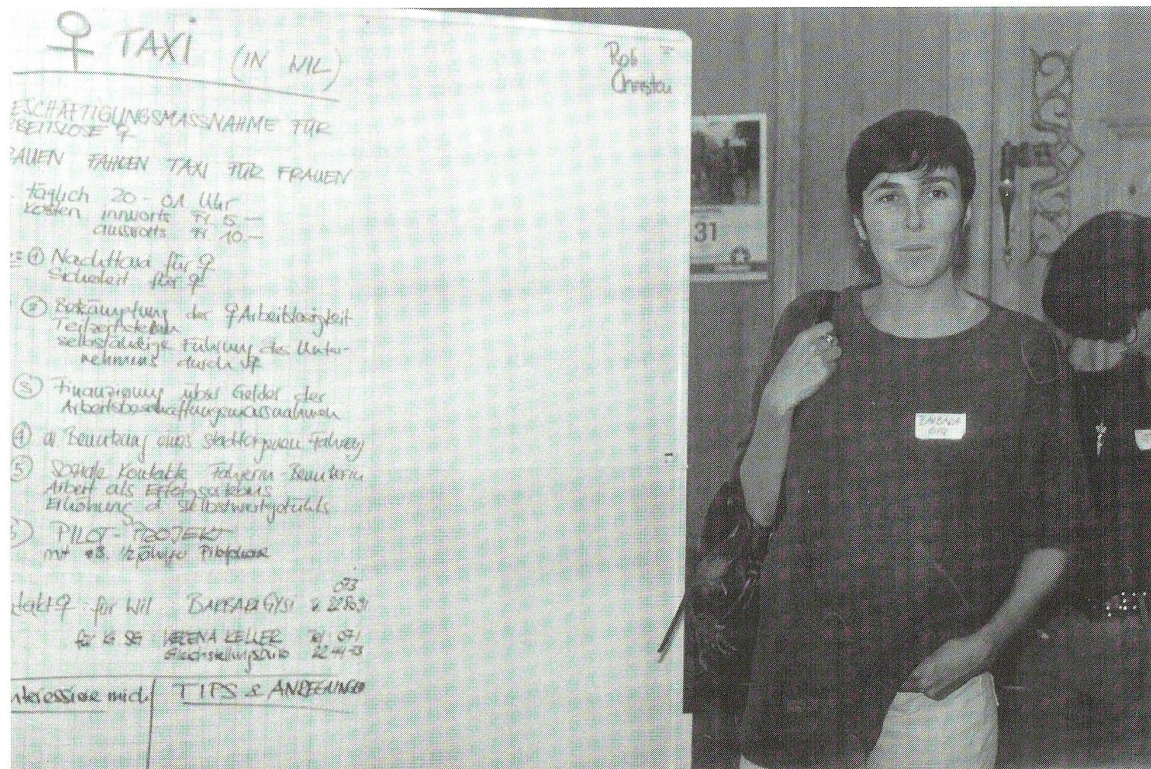 ♀ TAXI (IN WIL)
ESCHÄFTIGUNGSMASSNAHME FÜR
RBEITSLOSE ♀
AUEN FAHREN TAXI FÜR FRAUEN
täglich 20 - 01 Uhr
Kosten innworts Fr. 5.—
ausworts Fr 10.—
① Nachttaxi für ♀
Sicherheit für ♀
② Bekämpfung der ♀ Arbeitslosigkeit
Teilzeitstellen
selbständige Führung des Unter-
nehmens durch ♀
③ Finanzierung über Gelder der
Arbeitsbeschaffungsmassnahmen
④ Benutzung eines Fahrzeug
⑤ Soziale Kontakte Fahrerin-Benutzerin
Arbeit als Erfolgserlebnis
Erhöhung d Selbstwertgefühls
PILOT-PROJEKT
mit 1/2jähriger Pilotphase
ntakt♀ für Wil BARBARA GYSI
073
für KG SG VERENA KELLER 071
Gleichstellungsbüro
nteressiere mich TIPS & ANREGUNGEN
Rob
Christou
31
BARBARA
GYSI